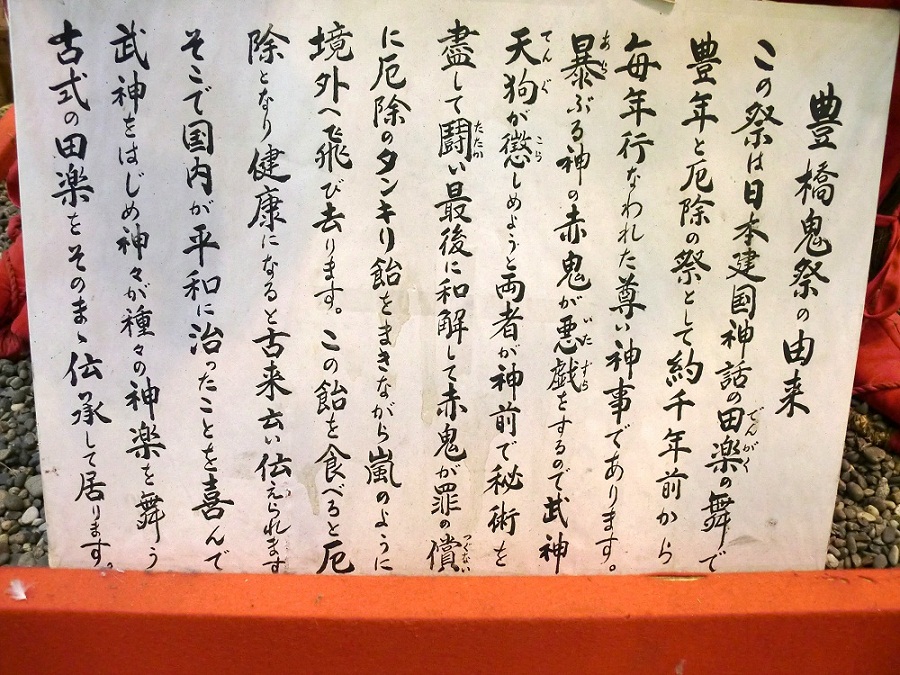 豊橋鬼祭の由来
この祭は日本建国神話の田楽の舞で
豊年と厄除の祭として約千年前から
毎年行なわれた尊い神事であります。
暴ぶる神の赤鬼が悪戯をするので武神
天狗が懲しめようと両者が神前で秘術を
盡して闘い最後に和解して赤鬼が罪の償
に厄除のタンキリ飴をまきながら嵐のように
境外へ飛び去ります。この飴を食べると厄
除となり健康になると古来云い伝えられます
そこで国内が平和に治ったことを喜んで
武神をはじめ神々が種々の神楽を舞う
古式の田楽をそのまゝ伝承して居ります。